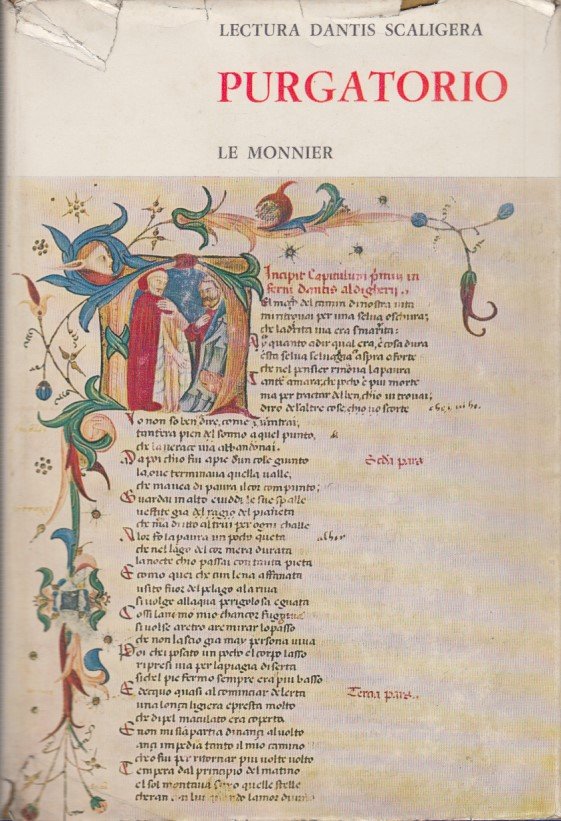 LECTURA DANTIS SCALIGERA
PURGATORIO
LE MONNIER
Incipit Capitulum p̄mū in
ferni dantis aldigherij
El meço del camin di nostra uita
mi ritrouai per una selua oschura;
che la drita uia era smarita:
Ay quanto a dir qual era, è cosa dura
esta selua seluagia aspra o forte
che nel pensier rinoua la paura
Tante amara; che pocho è piu morte
ma per tractar del ben, chio ui trouai;
diro de laltre cose, chio uo scorte
Io non so ben dire, come
tantera pien del sonno a quel punto,
che la uerace uia abbandonai.
Da poi chio fui a pie dun cole giunto
la, oue terminaua quella ualle,
Seda pars
che mauea di paura il cor compunto;
Guardai in alto e uidi le sue spalle
uestite gia del ragio del pianeta
che mena dritto altrui per ogni challe
Alor fo la paura un pocho queta
che nel lago del cor mera durata
la nocte chio passai con tanta pieta
E como quei che cum lena affanata
usito fuor del pelago a la riua
si uolge allaqua perigolosa e guata
Cossi lanimo mio chancor fugiua
si uolse aretro a remirar lo passo
che non lascio gia may persona uiua
Poi che posato un pocho el corpo lasso
ripresi uia per la piagia diserta
si chel pie fermo sempre era piu basso
E decquo quasi al cominciar de lerta
Tercia pars.
una lonça ligiera e presta molto
che di pel maculato era coperta
E non mi sia partia dinançi al uolto
ançi impedia tanto il mio camino
cheo fui per ritornar piu uolte uolto
Tempera dal principio del matino
el sol montaua quelle stelle
cheran